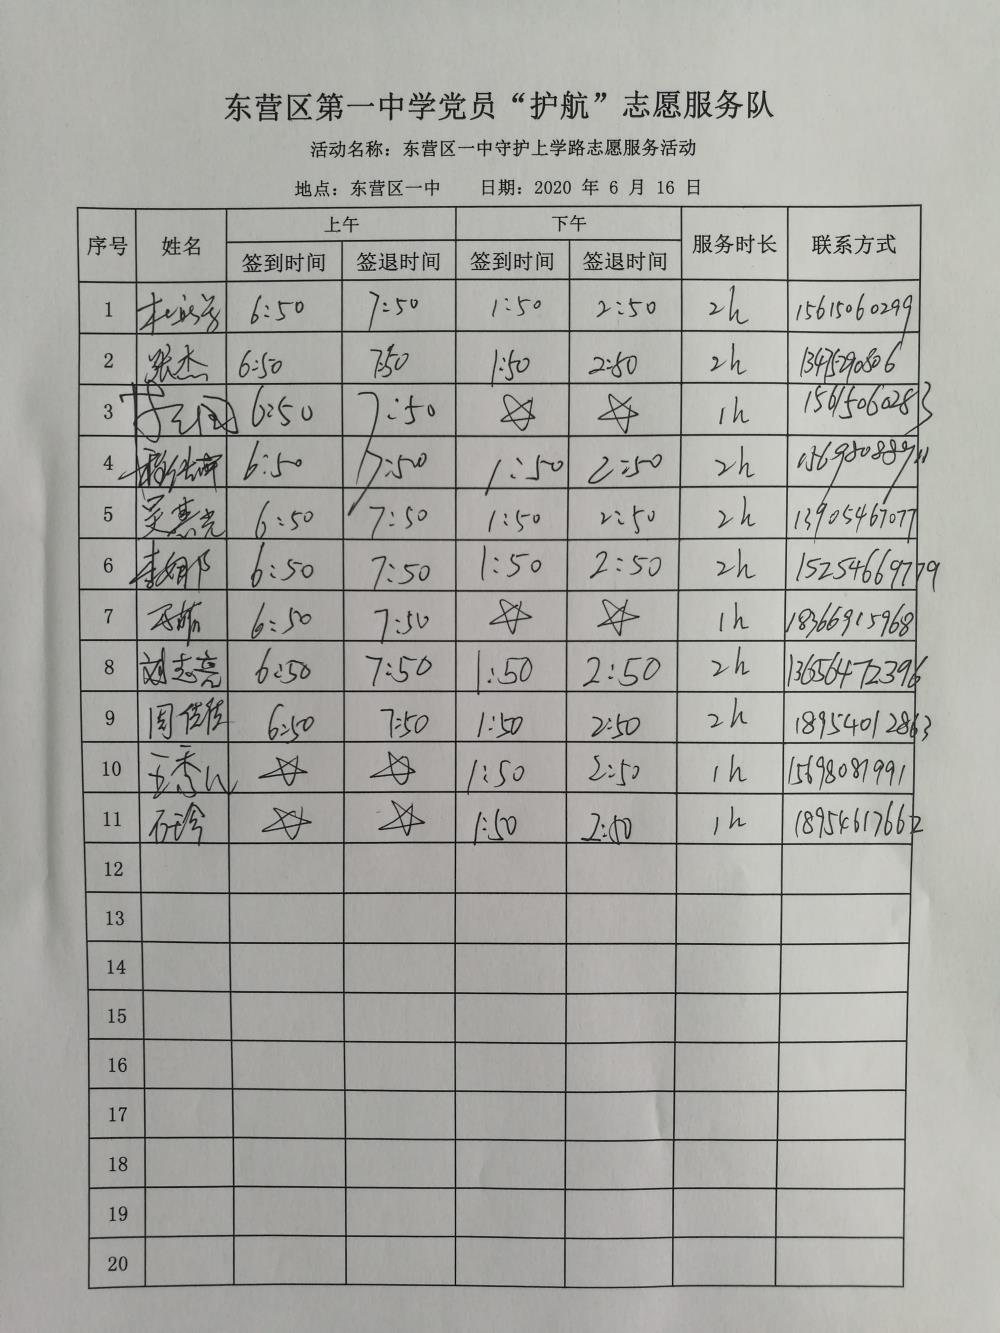 东营区第一中学党员“护航”志愿服务队
活动名称：东营区一中守护上学路志愿服务活动
地点：东营区一中 日期：2020 年 6 月 16 日
序号 姓名 上午 下午 服务时长 联系方式
签到时间 签退时间 签到时间 签退时间
1 6:50 7:50 1:50 2:50 2h 15615060299
2 张杰 6:50 7:50 1:50 2:50 2h 13475290806
3 6:50 7:50 1h 15615060283
4 6:50 7:50 1:50 2:50 2h
5 吴慧光 6:50 7:50 1:50 2:50 2h 13905467077
6 李娜 6:50 7:50 1:50 2:50 2h 15254669779
7 6:50 7:50 1h 18366915968
8 刘志亮 6:50 7:50 1:50 2:50 2h 13656472396
9 周佳佳 6:50 7:50 1:50 2:50 2h 18954012863
10 1:50 2:50 1h 15698081991
11 石玲 1:50 2:50 1h 18954617662
12
13
14
15
16
17
18
19
20